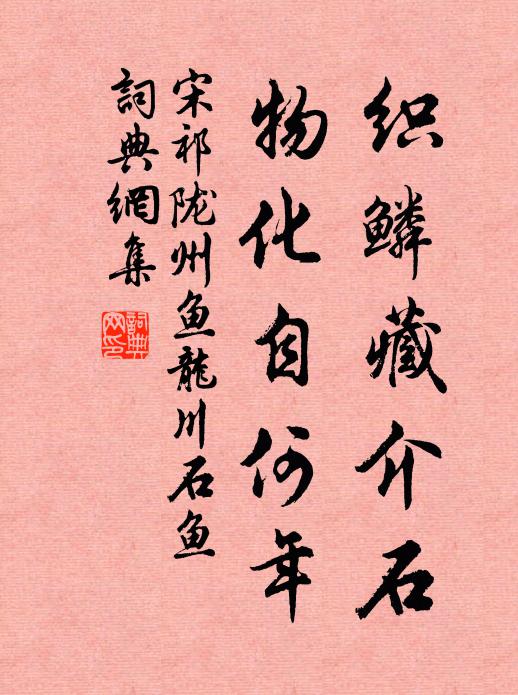 织鳞藏介石
物化自何年
宋祁陇州鱼龍川石鱼
詞典網集
詞典網印